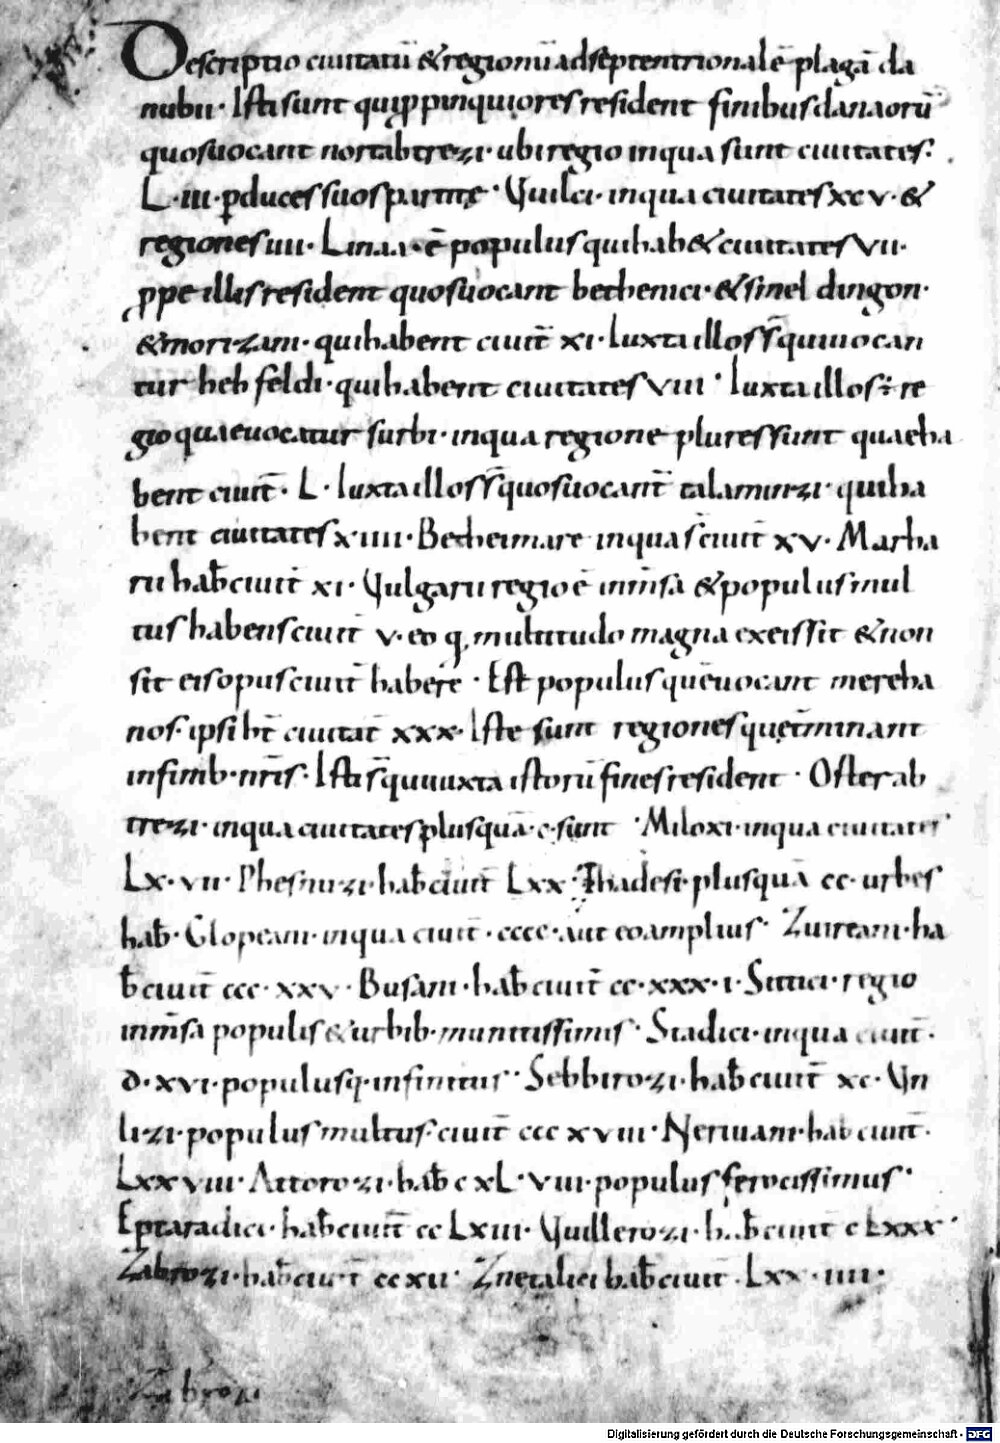 Descriptio ciuitatū &regionū adseptentrionalē plagā da
nubii· Isti sunt qui ꝓpinquiores resident finibus danaorū
quos uocant nortabtrezi· ubi regio inqua sunt ciuitates·
L·iii· ꝑduces suos partitę· Vuilci· inqua ciuitates xcv· &
regiones iiii· Linaa· ē populus qui hab& ciuitates vii·
ꝓpe illis resident quos uocant bethenici· & smeldingon·
& morizani· qui habent ciuit̄ xi· Iuxta illos s̄ qui uocan
tur hehfeldi· qui habent ciuitates viii· Iuxta illos ÷ re
gio quae uocatur surbi· inqua regione plures sunt quae ha
bent ciuit̄· L· Iuxta illos s̄ quos uocant̄ talaminzi· qui ha
bent ciuitates xiiii· Betheimare inqua s̄ ciuit̄ xv· Marha
rii hab̄ ciuit̄ xi· Vulgarii regio ē inm̄sa & populus mul
tus habens ciuit̄ v· eo q̨ multitudo magna exeis sit & non
sit eis opus ciuit̄ habere· Est populus quē uocant mereha
nos· ipsi hn̄t ciuitat̄ xxx· Iste sunt regiones quęt̄minant
infinib· nr̄is· Isti s̄ qui iuxta istorū fines resident· Osterab
trezi· inqua ciuitates plus quā·c· sunt· Miloxi· inqua ciuitates
Lx·vii· Phesnuzi· hab̄ ciuit̄ Lxx· Thadesi· plus quā cc· urbes
hab̄· Glopeani· inqua ciuit̄·cccc·aut eo amplius· Zuireani· ha
b̄ ciuit̄ ccc·xxv· Busani· hab̄ ciuit̄ cc·xxx·i· Sittici· regio
inm̄sa populis & urbib· munitissimis· Stadici· inqua ciuit̄·
d·xvi· populusq· infinitus· Sebbirozi· hab̄ ciuit̄ xc· Vn
lizi· populus multus· ciuit̄ ccc xviii· Neriuani· hab̄ ciuit̄·
Lxxviii· Attorozi· hab̄ cxL·viii· populus ferocissimus·
Eptaradici· hab̄ ciuit̄ cc Lxiii· Vuillerozi· hab̄ ciuit̄ cLxxx·
Zabrozi· hab̄ ciuit̄ ccxii· Znetalici hab̄ ciuit̄· Lxx·iiii·
Zabrozi
Digitalisierung gefördert durch die Deutsche Forschungsgemeinschaft - DFG